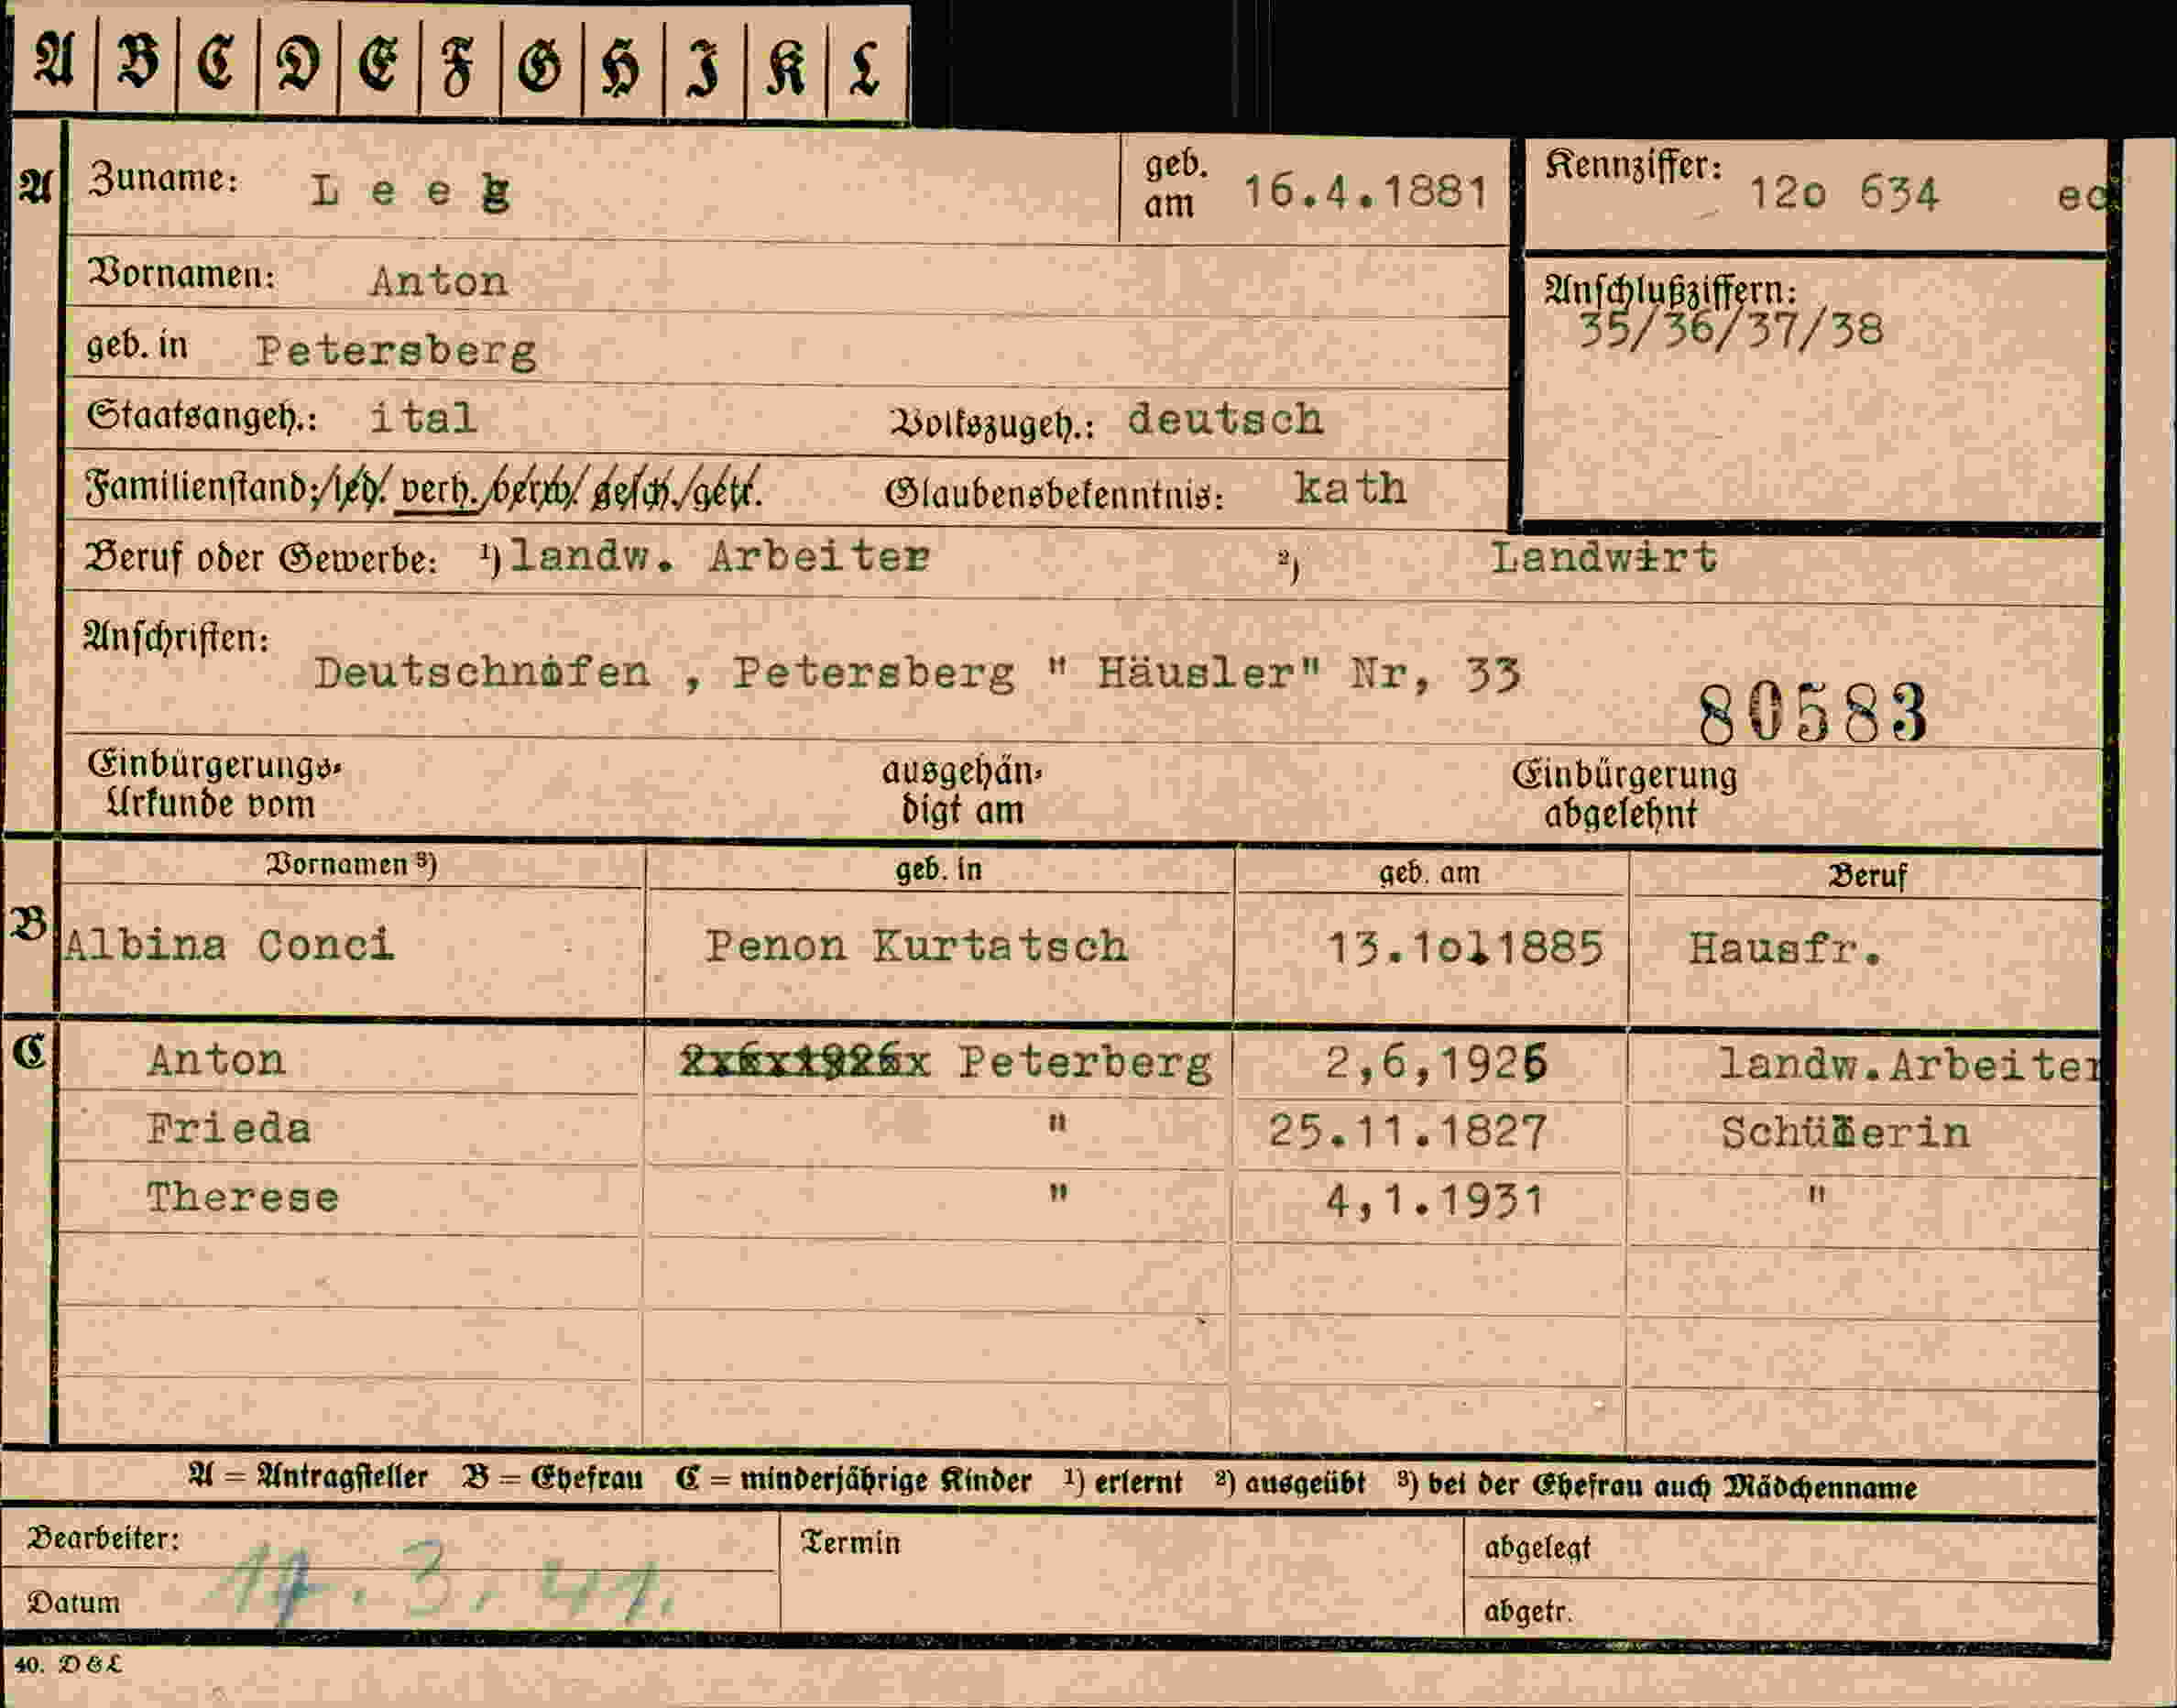 A B C D E F G H I K L
A Zuname: Leeg geb. am 16.4.1881 Kennziffer: 12o 634 ec
Vornamen: Anton Anschlußziffern:
35/36/37/38
geb. in Petersberg
Staatsangeh.: ital Volkszugeh.: deutsch
Familienstand: led. verh. verw. gesch. getr. Glaubensbekenntnis: kath
Beruf oder Gewerbe: ¹) landw. Arbeiter ²) Landwirt
Anschriften:
Deutschnofen , Petersberg " Häusler" Nr, 33
80583
Einbürgerungs- ausgehän- Einbürgerung
Urkunde vom digt am abgelehnt
Vornamen ³) geb. in geb. am Beruf
B Albina Conci Penon Kurtatsch 13.1o.1885 Hausfr.
C Anton 2x6x1926x Peterberg 2,6,1926 landw.Arbeiter
Frieda " 25.11.1827 Schülerin
Therese " 4,1.1931 "
A = Antragsteller B = Ehefrau C = minderjährige Kinder ¹) erlernt ²) ausgeübt ³) bei der Ehefrau auch Mädchenname
Bearbeiter: Termin abgelegt
17.3.41.
Datum abgetr.
40. D & L